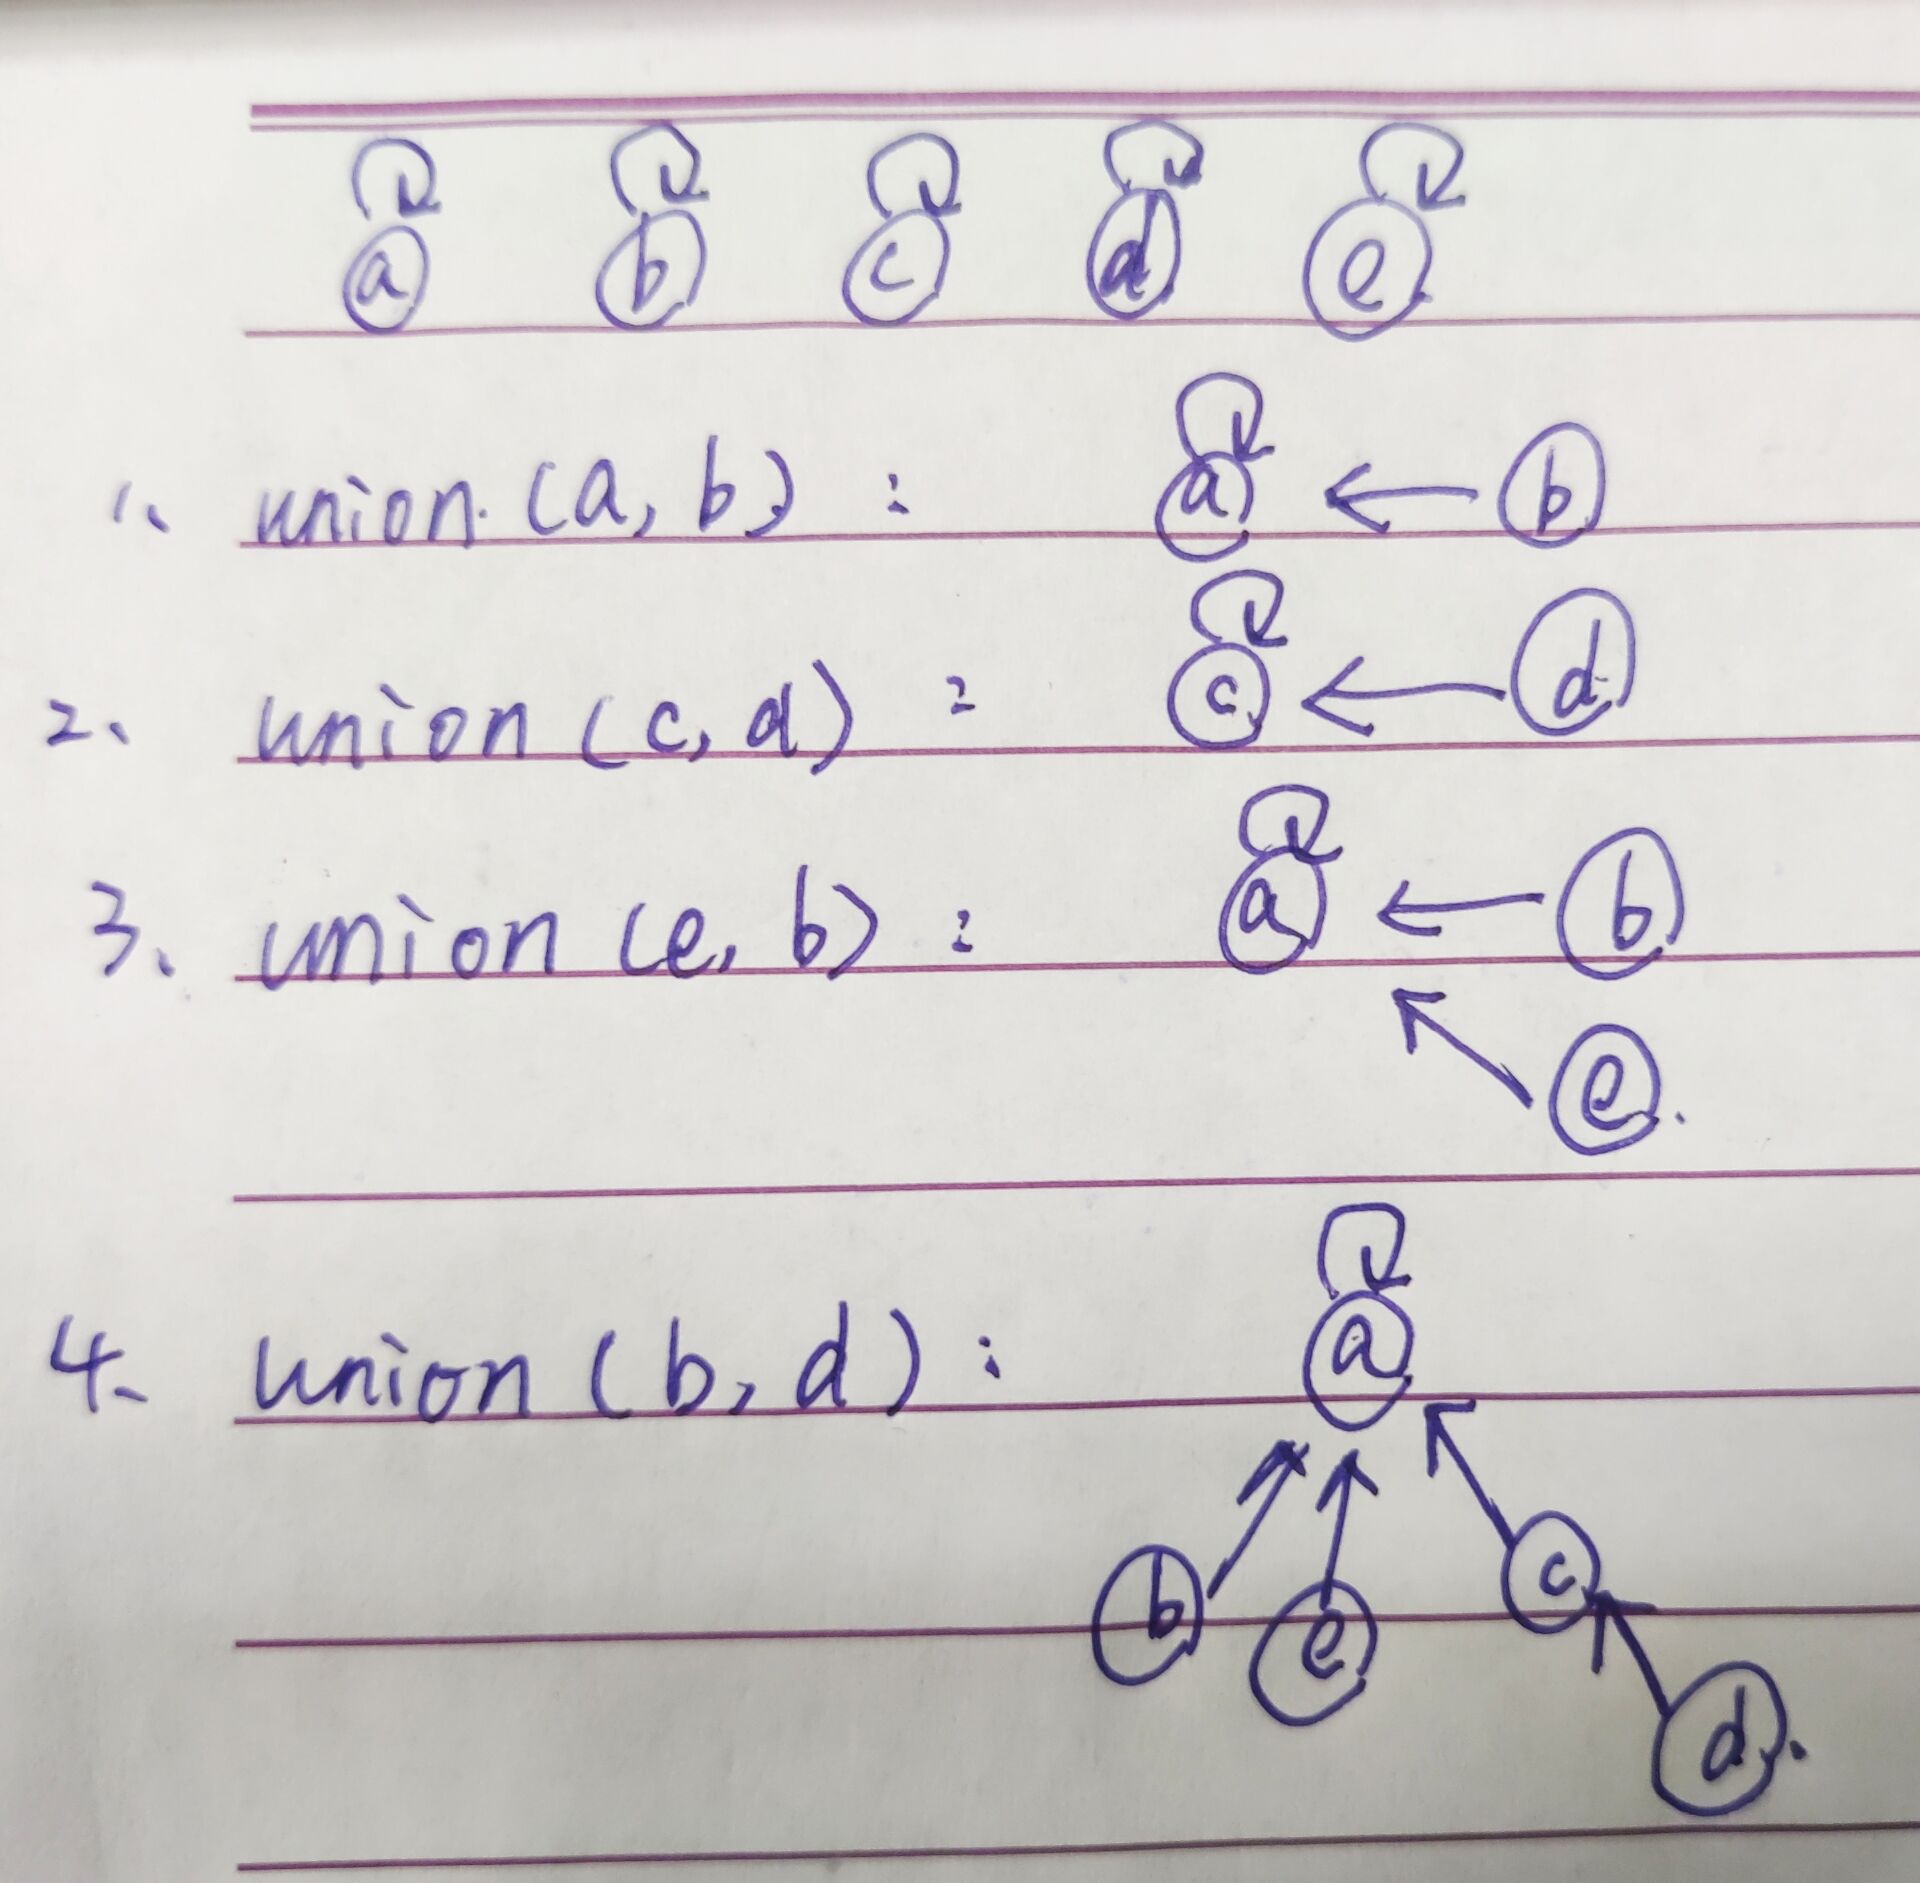 a b c d e
1. union (a, b) : a ← b
2. union (c, d) : c ← d
3. union (e, b) : a ← b
e
4. union (b, d) : a
b e c
d